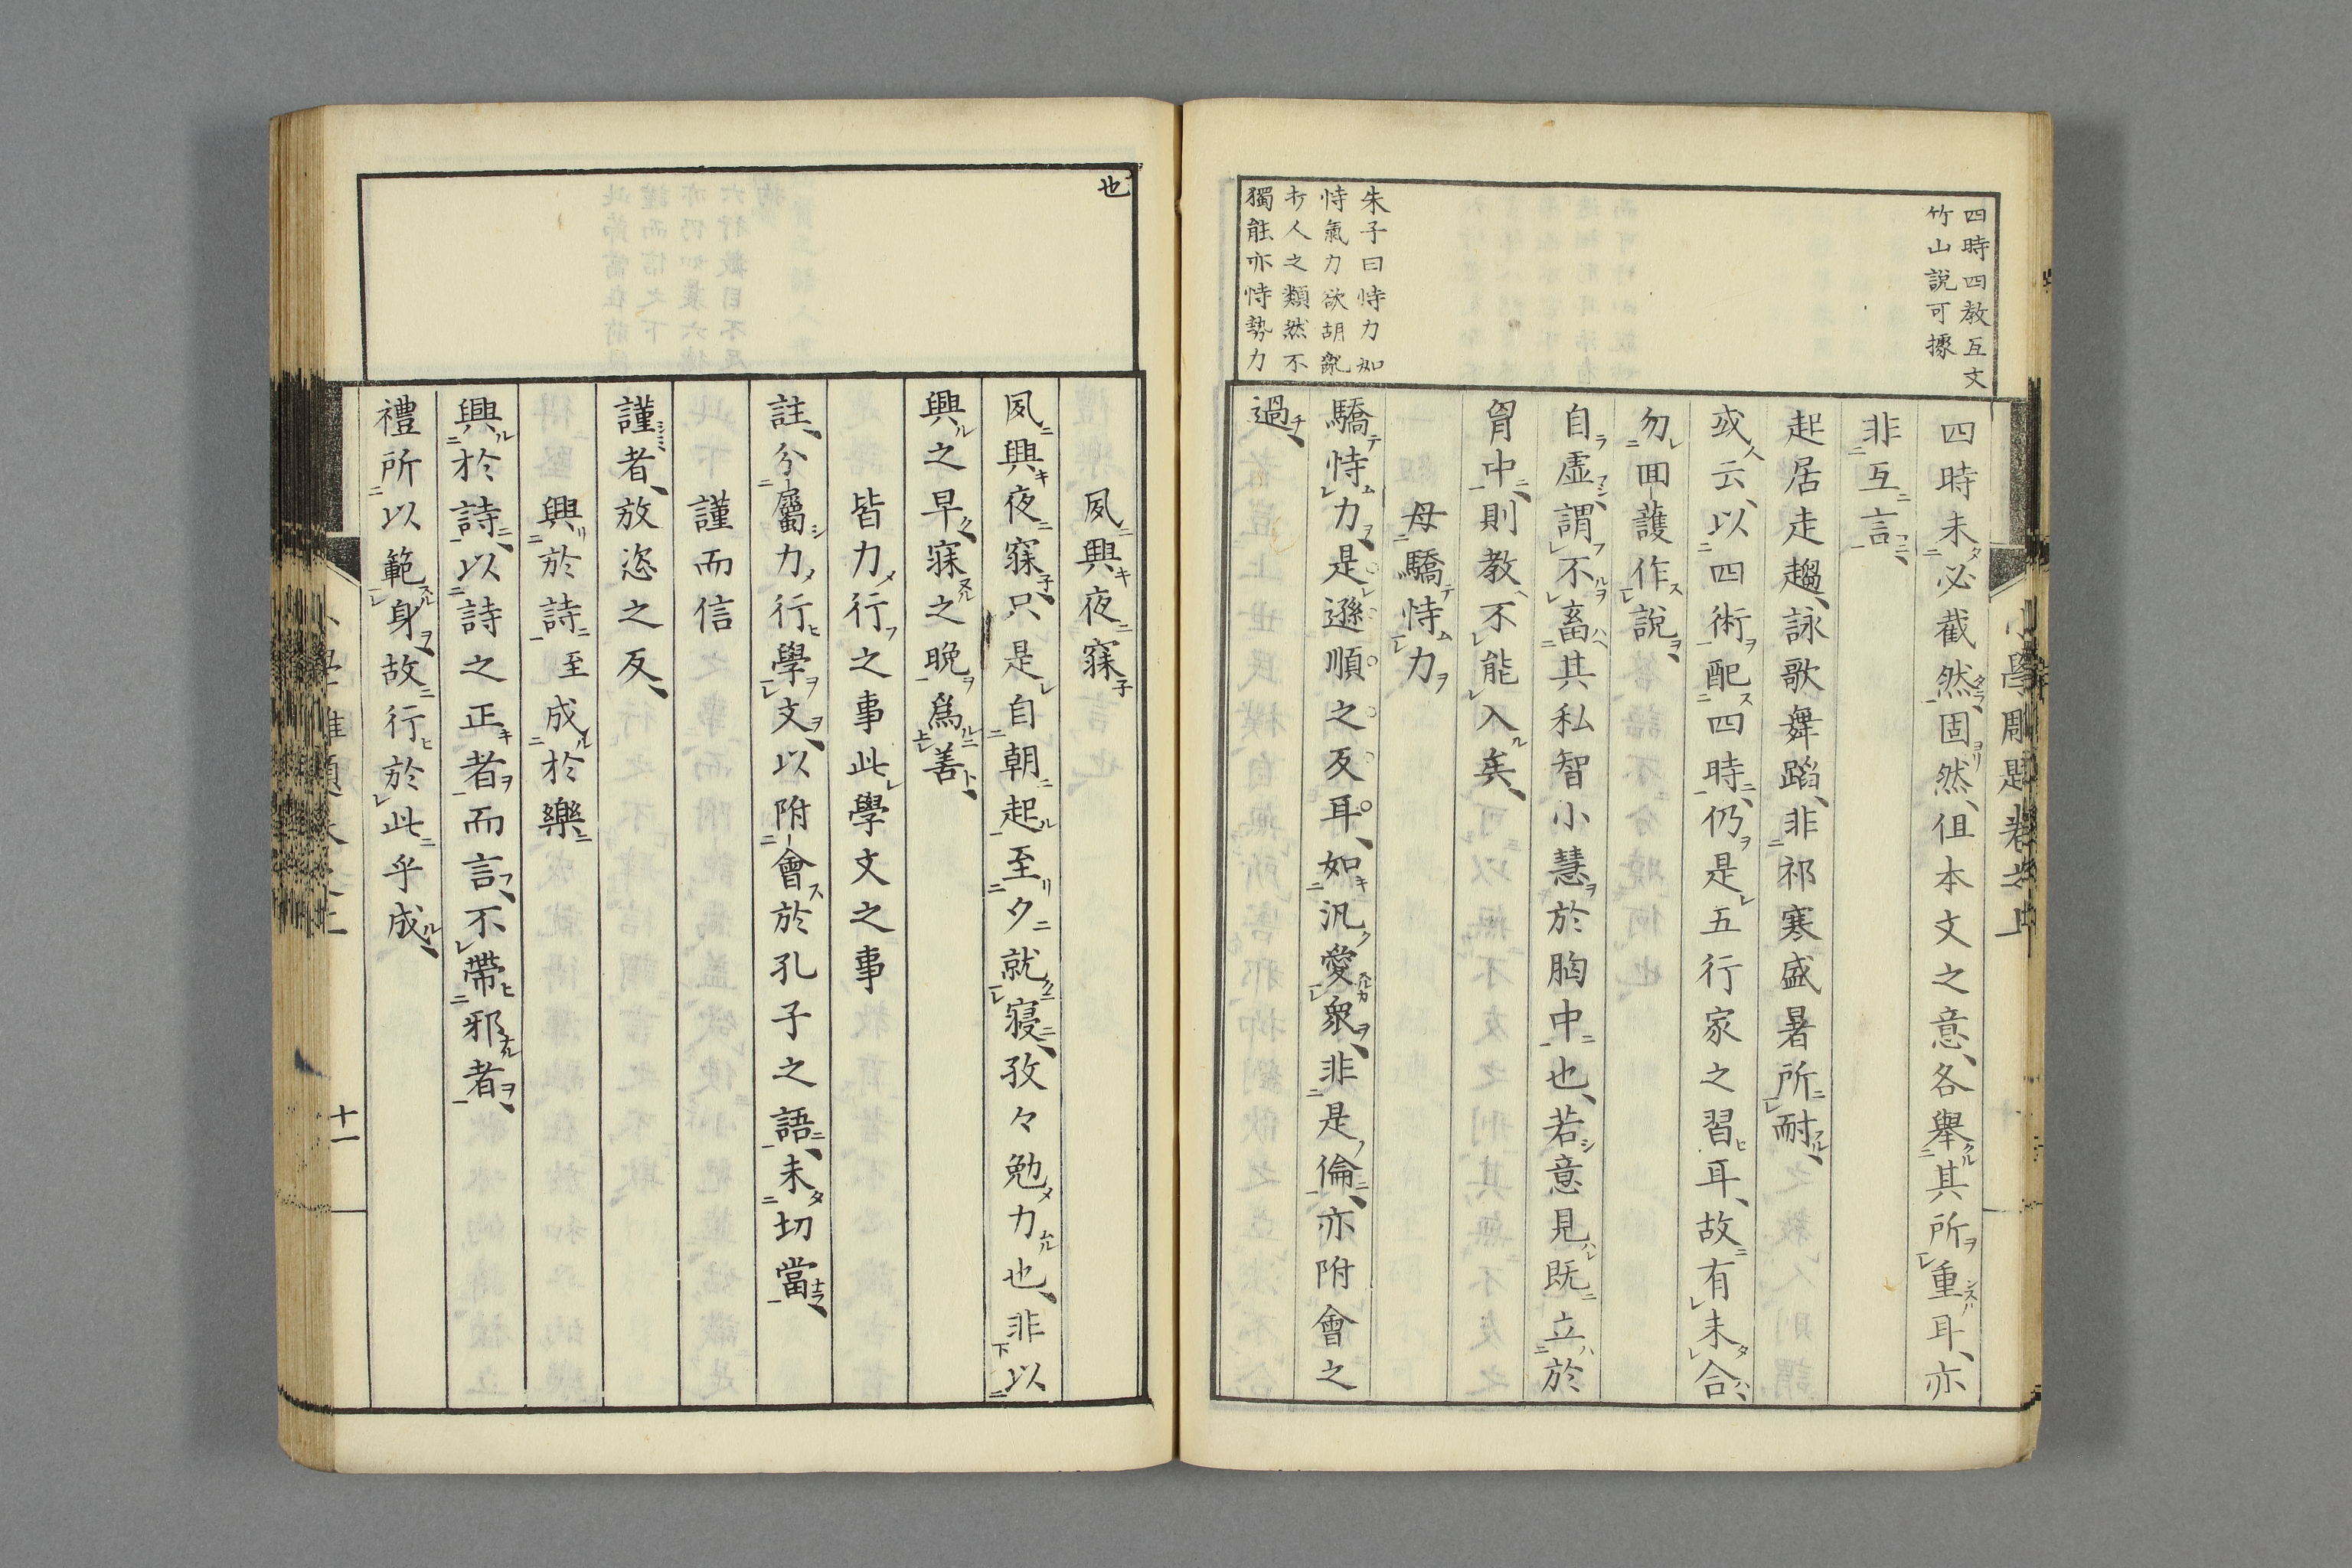 四時四教互文
竹山說可據
朱子曰恃力如
恃氣力欲胡亂
打人之類然不
獨能亦恃勢力
四時未必截然固然、但本文之意、各舉其所重耳、亦
非互言、
起居走趨、詠歌舞蹈、非祁寒盛暑所耐、
或云、以四術配四時、仍是五行家之習耳、故有未合、
勿回護作說、
自虛謂、不畜其私智小慧於胸中也、若意見既立於
胷中、則教不能入矣、
毋驕恃力
驕恃力、是遜順之反耳、如汎愛衆、非是倫、亦附會之
過、
也
夙興夜寐
夙興夜寐、只是自朝起至夕就寢、孜々勉力也、非以
興之早寐之晩爲善、
皆力行之事此學文之事
註、分屬力行學文、以附會於孔子之語、未切當、
謹而信
謹者、放恣之反、
興於詩至成於樂
興於詩、以詩之正者而言、不帶邪者、
禮所以範身、故行於此乎成、
十一